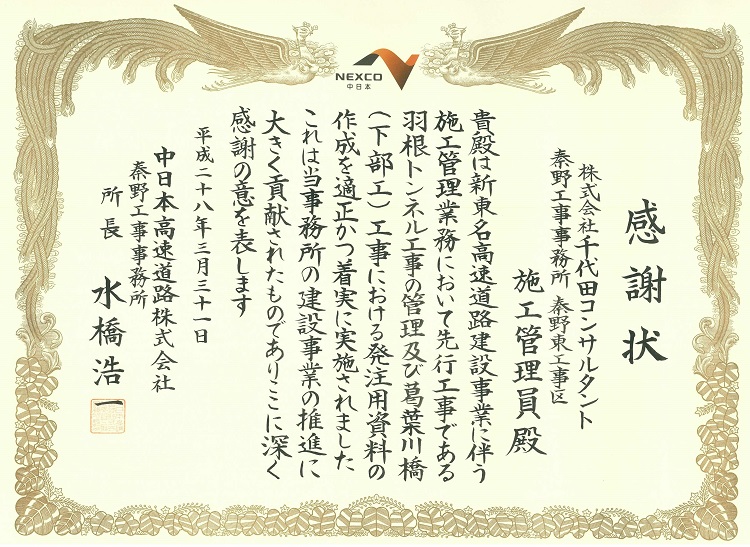 NEXCO
中日本
感謝状
株式会社千代田コンサルタント
秦野工事事務所 秦野東工事区
施工管理員 殿
貴殿は新東名高速道路建設事業に伴う
施工管理業務において先行工事である
羽根トンネル工事の管理及び葛葉川橋
(下部工)工事における発注用資料の
作成を適正かつ着実に実施されました
これは当事務所の建設事業の推進に
大きく貢献されたものでありここに深く
感謝の意を表します
平成二十八年三月三十一日
中日本高速道路株式会社
秦野工事事務所
所長 水橋浩一